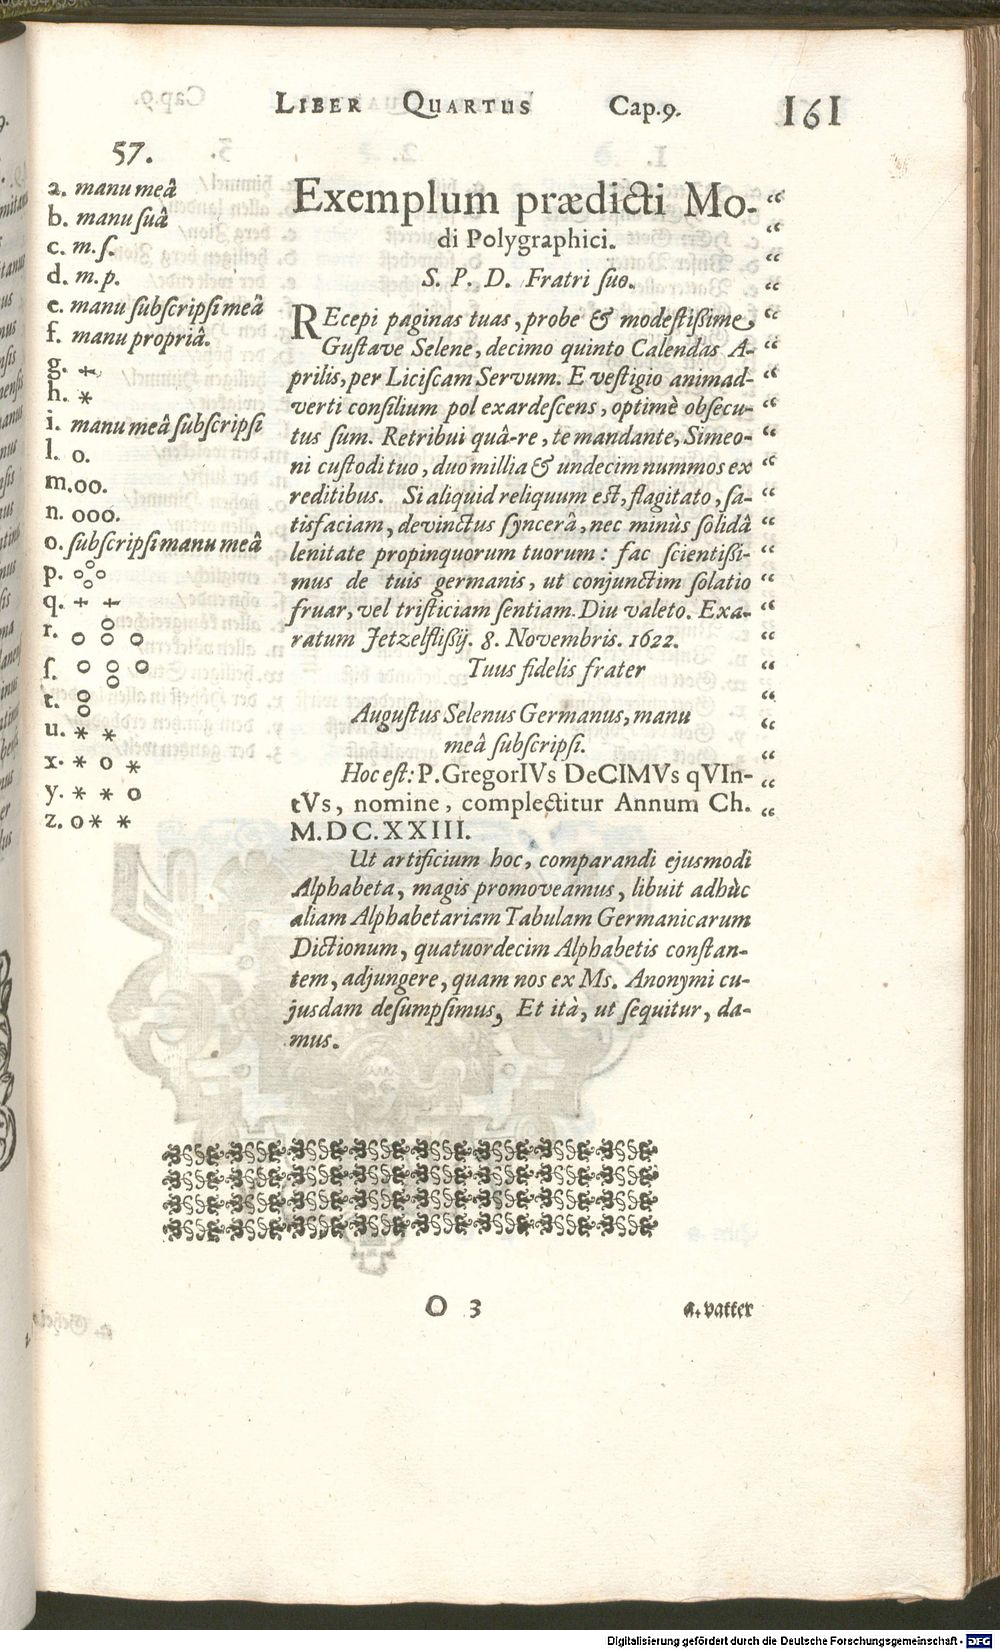 LIBER QUARTUS Cap.9. 161
57.
a. manu meâ
b. manu ſuâ
c. m. ſ.
d. m. p.
e. manu ſubſcripſi meâ
f. manu propriâ.
g. +
h. *
i. manu meâ ſubſcripſi
l. o.
m. oo.
n. ooo.
o. ſubſcripſi manu meâ
p.
q. + +
r.
ſ.
t.
u. * *
x. * o *
y. * * o
z. o * *
Exemplum prædicti Mo-
di Polygraphici.
S. P. D. Fratri ſuo.
REcepi paginas tuas, probe & modeſtißime
Guſtave Selene, decimo quinto Calendas A-
prilis, per Liciſcam Servum. E veſtigio animad-
verti conſilium pol exardeſcens, optimè obſecu-
tus ſum. Retribui quâ-re, te mandante, Simeo-
ni cuſtodi tuo, duo millia & undecim nummos ex
reditibus. Si aliquid reliquum eſt, flagitato, ſa-
tisfaciam, devinctus ſyncerâ, nec minùs ſolidâ
lenitate propinquorum tuorum: fac ſcientißi-
mus de tuis germanis, ut conjunctim ſolatio
fruar, vel triſticiam ſentiam. Diu valeto. Exa-
ratum Jetzelflißij. 8. Novembris. 1622.
Tuus fidelis frater
Auguſtus Selenus Germanus, manu
meâ ſubſcripſi.
Hoc eſt: P. GregorIVs DeCIMVs qVIn-
tVs, nomine, complectitur Annum Ch.
M.DC.XXIII.
Ut artificium hoc, comparandi ejusmodi
Alphabeta, magis promoveamus, libuit adhùc
aliam Alphabetariam Tabulam Germanicarum
Dictionum, quatuordecim Alphabetis conſtan-
tem, adjungere, quam nos ex Ms. Anonymi cu-
jusdam deſumpſimus, Et ità, ut ſequitur, da-
mus.
O 3 a. vatter
Digitalisierung gefördert durch die Deutsche Forschungsgemeinschaft - DFG